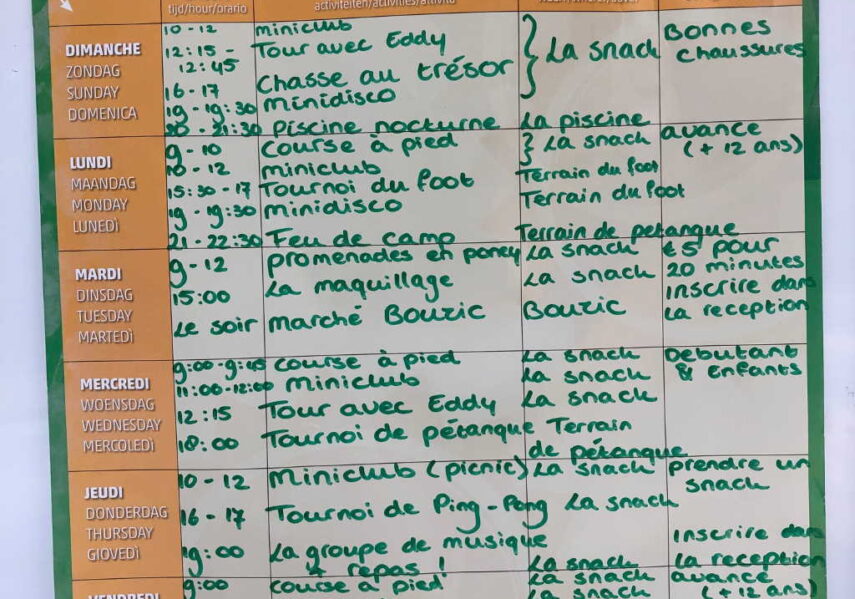 tijd/hour/orario activiteiten/activities/attività
10 - 12 miniclub Bonnes
DIMANCHE 12:15 - Tour avec Eddy } La snack chaussures
ZONDAG 12:45
SUNDAY 16 - 17 Chasse au trésor
DOMENICA 19 - 19:30 minidisco
20 - 21:30 Piscine nocturne La piscine
LUNDI 9 - 10 Course à pied } La snack avance
MAANDAG 10 - 12 miniclub Terrain du foot (+ 12 ans)
MONDAY 15:30 - 17 Tournoi du foot Terrain du foot
LUNEDÌ 19 - 19:30 minidisco
21 - 22:30 Feu de camp Terrain de petanque
MARDI 9 - 12 promenades en poney La snack €5 pour
DINSDAG 15:00 La maquillage La snack 20 minutes
TUESDAY Le soir marché Bouzic Bouzic inscrire dans
MARTEDÌ la reception
9:00 - 9:45 course à pied La snack Debutant
MERCREDI 11:00 - 12:00 miniclub La snack & Enfants
WOENSDAG 12:15 Tour avec Eddy La snack
WEDNESDAY 18:00 Tournoi de pétanque Terrain
MERCOLEDÌ de pétanque
JEUDI 10 - 12 Miniclub (picnic) La snack prendre un
snack
DONDERDAG 16 - 17 Tournoi de Ping-Pong La snack
THURSDAY 19:00 La groupe de musique inscrire dans
GIOVEDÌ + repas ! La snack la reception
9:00 course à pied La snack avance
VENDREDI La snack (+ 12 ans)